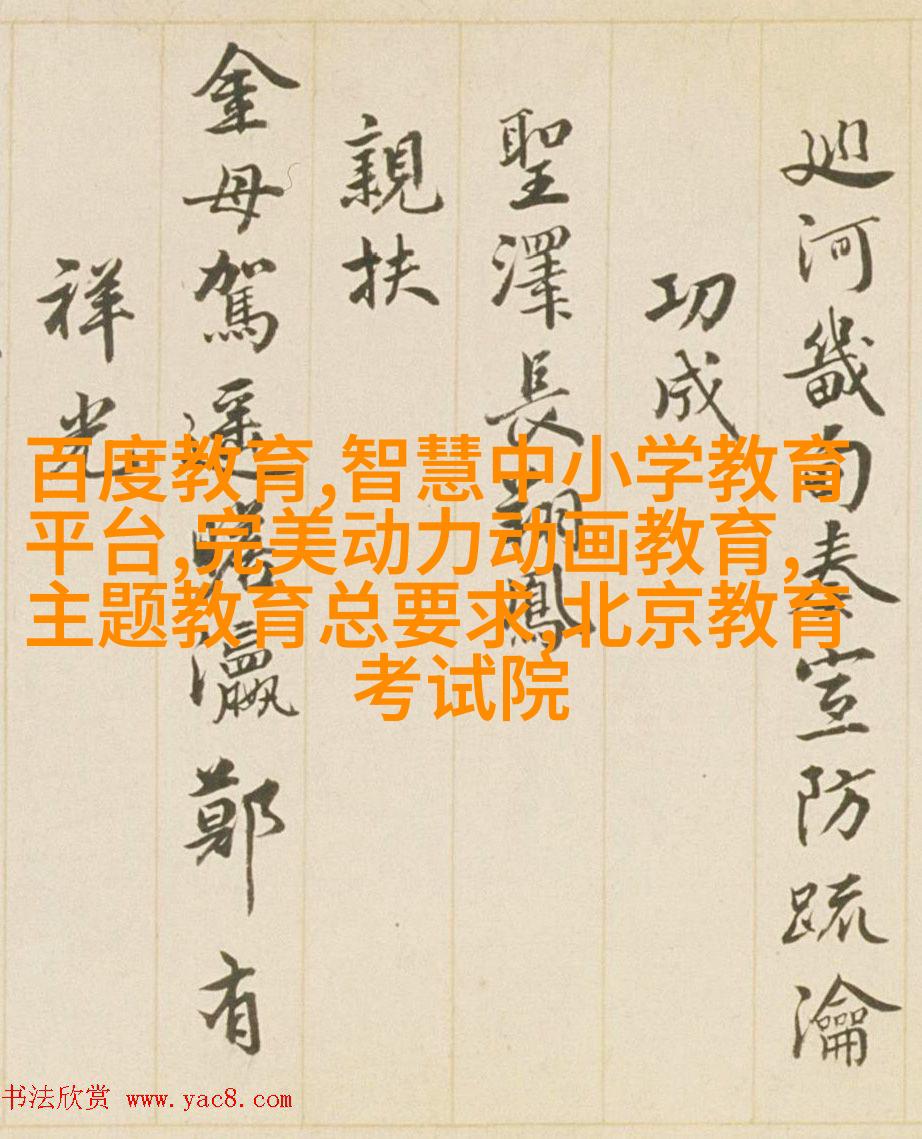 巡河畿甸奏宣防疏瀹
功成
聖澤長翔鳳
親扶
金母駕遥瞻瀛鄭有
祥光
百度教育,智慧中小学教育
平台,完美动力动画教育,
主题教育总要求,北京教育
考试院
书法欣赏 www.yac8.com